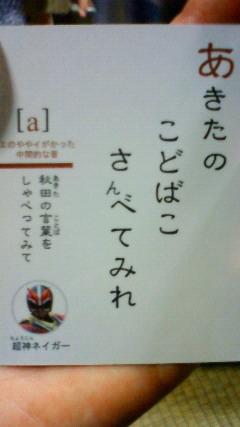 あきたの
こどばこ
さんべてみれ
[a]
エのややイがかった
中間的な音
秋田の言葉を
しゃべってみて
超神ネイガー